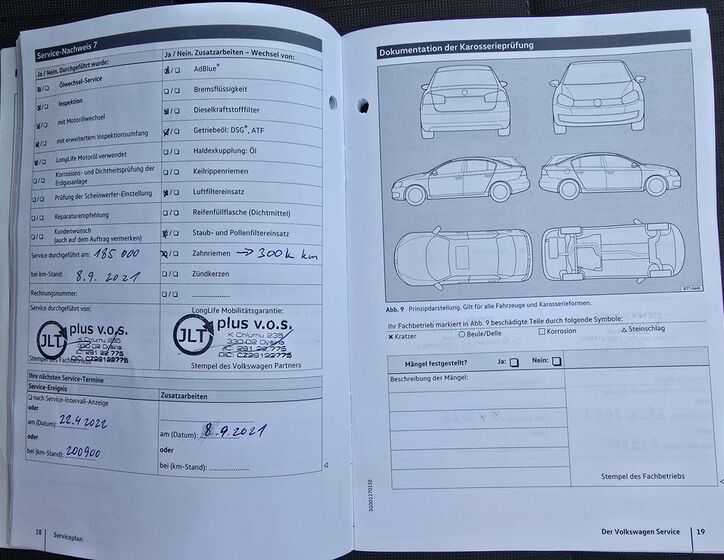 Service-Nachweis 7
Ja / Nein. Durchgeführt wurde:
Ölwechsel-Service
Inspektion
mit Motorölwechsel
mit erweitertem Inspektionsumfang
LongLife Motoröl verwendet
Korrosions- und Dichtheitsprüfung der
Erdgasanlage
Prüfung der Scheinwerfer-Einstellung
Reparaturempfehlung
Kundenwunsch
(auch auf dem Auftrag vermerken)
Service durchgeführt am: 185 000
bei km-Stand: 8.9.2021
Rechnungsnummer:
Service durchgeführt von:
JLT plus v.o.s.
K Chlumu 235
330 02 Dýšina
Stempel des Fachbetriebs
Ja / Nein. Zusatzarbeiten – Wechsel von:
AdBlue®
Bremsflüssigkeit
Dieselkraftstofffilter
Getriebeöl: DSG®, ATF
Haldexkupplung: Öl
Keilrippenriemen
Luftfiltereinsatz
Reifenfüllflasche (Dichtmittel)
Staub- und Pollenfiltereinsatz
Zahnriemen → 300k km
Zündkerzen
LongLife Mobilitätsgarantie:
JLT plus v.o.s.
K Chlumu 235
330 02 Dýšina
Stempel des Volkswagen Partners
Ihre nächsten Service-Termine
Service-Ereignis
nach Service-Intervall-Anzeige
oder
am (Datum): 22.4.2022
oder
bei (km-Stand): 200900
Zusatzarbeiten
am (Datum): 8.9.2021
oder
bei (km-Stand):
18 Serviceplan
Dokumentation der Karosserieprüfung
B7T-0449
Abb. 9 Prinzipdarstellung. Gilt für alle Fahrzeuge und Karosserieformen.
Ihr Fachbetrieb markiert in Abb. 9 beschädigte Teile durch folgende Symbole:
× Kratzer ○ Beule/Delle □ Korrosion △ Steinschlag
Mängel festgestellt? Ja: □ Nein: □
Beschreibung der Mängel:
Stempel des Fachbetriebs
3G0012701SE
Der Volkswagen Service 19